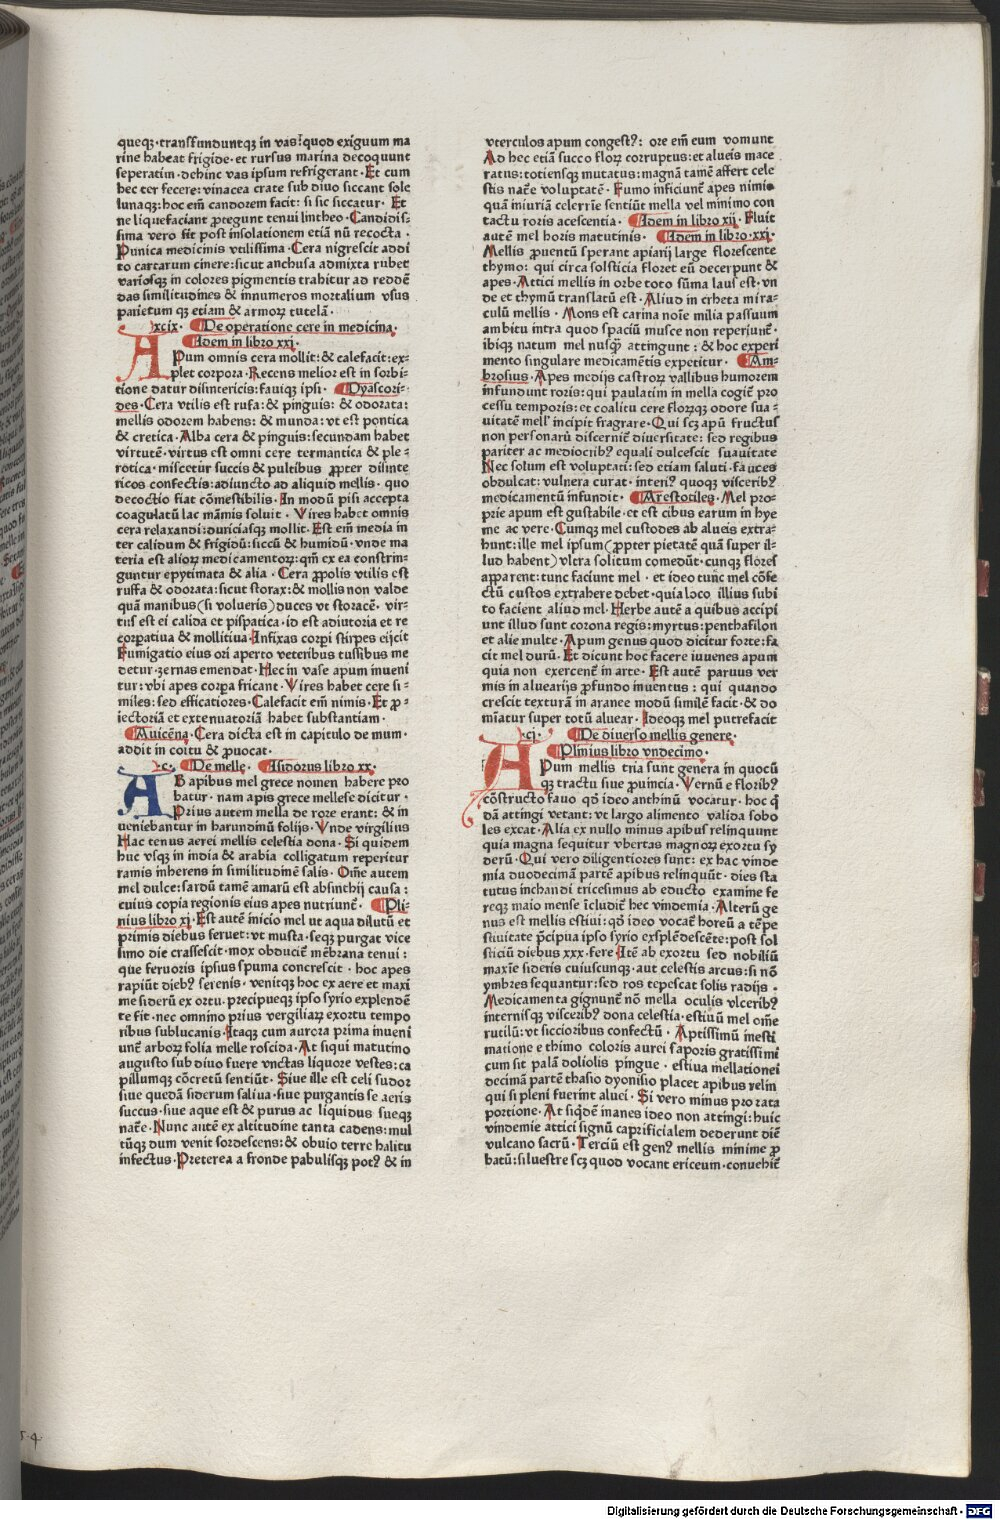 queqꝫ·transfunduntqꝫ in vas:quod exiguum ma
rine habeat frigide·et rursus marina decoquunt
seperatim·dehinc vas ipsum refrigerant·Et cum
hec ter fecere:vinacea crate sub diuo siccant sole
lunaqꝫ:hoc em̄ candorem facit: si sic siccatur· Et
ne liquefaciant ꝓtegunt tenui lintheo·Candidis⸗
sima vero fit post insolationem etiā nū recocta·
Punica medicinis vtilissima·Cera nigrescit addi
to cartarum cinere:sicut anchusa admixta rubet
variosqꝫ in colores pigmentis trahitur ad reddē
das similitudines & innumeros mortalium vsus
parietum qꝫ etiam & armoꝝ tutelā·
xcix· De operatione cere in medicina·
Idem in libro xxj·
APum omnis cera mollit:& calefacit:ex⸗
plet corpora·Recens melior est in sorbi⸗
tione datur disintericis:fauiqꝫ ipsi· Dyascori⸗
des·Cera vtilis est rufa:& pinguis: & odorata:
mellis odorem habens: & munda: vt est pontica
& cretica·Alba cera & pinguis:secundam habet
virtutē·virtus est omni cere termantica & ple⸗
rotica·miscetur succis & pultibus ꝓpter disinte
ricos confectis:adiuncto ad aliquid mellis· quo
decoctio fiat cōmestibilis·In modū pisi accepta
coagulatū lac māmis soluit· Vires habet omnis
cera relaxandi:duriciasqꝫ mollit·Est em̄ media in
ter calidum & frigidū:siccū & humidū·vnde ma
teria est alioꝝ medicamentoꝝ:qm̄ ex ea constrin⸗
guntur epytimata & alia· Cera ꝓpolis vtilis est
ruffa & odorata:sicut storax:& mollis non valde
quā manibus(si volueris)duces vt storacē· vir⸗
tus est ei calida et pispatica·id est adiutoria et re
corpatiua & mollitiua·Infixas corpri stirpes eijcit
Fumigatio eius ori aperto veteribus tussibus me
detur·zernas emendat·Hec in vase apum inueni
tur:vbi apes corpra fricant·Vires habet cere si⸗
miles:sed efficatiores·Calefacit em̄ nimis·Et ꝓ⸗
iectoriā et extenuatoriā habet substantiam·
Auicēna·Cera dicta est in capitulo de mum·
addit in coitu & ꝓuocat·
·c· De melle· Isidorus libro xx·
AB apibus mel grece nomen habere pro
batur·nam apis grece mellese dicitur·
Prius autem mella de roze erant: & in
ueniebantur in harundinū folijs·Vnde virgilius
Hac tenus aerei mellis celestia dona·Si quidem
huc vsqꝫ in india & arabia colligatum reperitur
ramis inherens in similitudinē salis·Om̄e autem
mel dulce:sardū tamē amarū est absinthij causa:
cuius copia regionis eius apes nutriunt̄· Pli⸗
nius libro xj·Est autē inicio mel ut aqua dilutū et
primis diebus feruet:vt musta·seqꝫ purgat vice
simo die crassescit·mox obducit̄ mēbrana tenui:
que feruoris ipsius spuma concrescit· hoc apes
rapiūt diebꝰ serenis·venitqꝫ hoc ex aere et maxi
me siderū ex ortu·precipueqꝫ ipso syrio explendē
te fit·nec omnino prius vergiliaꝝ exortu tempo
ribus sublucanis·Itaqꝫ cum aurora prima inueni
unt̄ arboꝝ folia melle roscida·At siqui matutino
augusto sub diuo fuere vnctas liquore vestes:ca
pillumqꝫ cōcretū sentiūt·Siue ille est celi sudor
siue quedā siderum saliua·siue purgantis se aeris
succus·siue aque est & purus ac liquidus sueqꝫ
natē·Nunc autē ex altitudine tanta cadens:mul
tūqꝫ dum venit sordescens:& obuio terre halitu
infectus·Preterea a fronde pabulisqꝫ potꝰ & in
vterculos apum congestꝰ: ore em̄ eum vomunt
Ad hec etiā succo floꝝ corruptus:et alueis mace
ratus:totiensqꝫ mutatus:magnā tamē affert cele
stis nat̄e voluptatē·Fumo inficiunt̄ apes nimio
quā iniuriā celerr̄ie sentiūt mella vel minimo con
tactu roris acescentia· Idem in libro xij·Fluit
autē mel horis matutinis· Idem in libro·xxj·
Mellis ꝓuentū sperant apiarij large florescente
thymo: qui circa solsticia floret eū decerpunt &
apes·Attici mellis in orbe toto sūma laus est·vn
de et thymū translatū est·Aliud in crheta mira⸗
culū mellis·Mons est carina noīe milia passuum
ambitu intra quod spaciū musce non reperiunt̄·
ibiqꝫ natum mel nusqꝫ̄ attingunt: & hoc experi
mento singulare medicamētis expetitur· Am⸗
brosius·Apes medijs castroꝝ vallibus humorem
infundunt roris:qui paulatim in mella cogit̄ pro
cessu temporis:et coalitu cere floꝝqꝫ odore sua⸗
uitatē mellꝭ incipit fragrare·Qui scꝫ apū fructus
non personarū discernit̄ diuersitate: sed regibus
pariter ac mediocribꝰ equali dulcescit suauitate
Nec solum est voluptati:sed etiam saluti·fauces
obdulcat: vulnera curat·interiꝰ quoqꝫ visceribꝰ
medicamentū infundit· Arestotiles·Mel pro⸗
prie apum est gustabile·et est cibus earum in hye
me ac vere·Cumqꝫ mel custodes ab alueis extra⸗
hunt:ille mel ipsum(ꝓpter pietatē quā super il⸗
lud habent)vltra solitum comedūt·cunqꝫ flores
apparent:tunc faciunt mel· et ideo tunc mel cōfe
ctū custos extrahere debet·quia loco illius subi
to facient aliud mel·Herbe autē a quibus accipi
unt illud sunt corona regis:myrtus:penthafilon
et alie multe·Apum genus quod dicitur forte:fa
cit mel durū·Et dicunt hoc facere iuuenes apum
quia non exercent̄ in arte·Est autē paruus ver
mis in aluearijs ꝓfundo inuentus: qui quando
crescit texturā in aranee modū similē facit·& do
mīatur super totū aluear·Ideoqꝫ mel putrefacit
·cj· De diuerso mellis genere·
Plinius libro vndecimo·
APum mellis tria sunt genera in quocū
qꝫ tractu siue ꝓuincia·Vernū e floribꝰ
cōstructo fauo qd̄ ideo anthinū vocatur·hoc q̄
dā attingi vetant: vt largo alimento valida sobo
les exeat·Alia ex nullo minus apibus relinquunt
quia magna sequitur vbertas magnoꝝ exortu sy
derū·Qui vero diligentiores sunt: ex hac vinde
mia duodecimā partē apibus relinquūt· dies sta
tutus inchandi tricesimus ab educto examine fe
reqꝫ maio mense īcludit̄ hec vindemia·Alterū ge
nus est mellis estiui:qd̄ ideo vocat̄ horeū a tēpe
stiuitate p̄cipua ipso syrio esplēdescēte:post sol
sticiū diebus xxx·fere·Itē ab exortu sed nobiliū
maxīe sideris cuiuscunqꝫ·aut celestis arcus:si nō
ymbres sequantur:sed ros tepescat solis radijs·
Medicamenta gignunt̄ nō mella oculis vlceribꝰ
internisqꝫ visceribꝰ dona celestia·estiuū mel om̄e
rutilū:vt siccioribus confectū· Aptissimū inesti
matione e thimo coloris aurei saporis gratissimi
cum sit palā doliolis pingue·estiua mellationei
decimā partē thasio dyonisio placet apibus relin
qui si pleni fuerint aluei·Si vero minus pro rata
portione·At siqdē inanes ideo non attingi:huic
vindemie attici signū caprificialem dederunt diē
vulcano sacrū·Terciū est genꝰ mellis minime ꝓ
batū:siluestre scꝫ quod vocant ericeum·conuehit̄
5·4·
Digitalisierung gefördert durch die Deutsche Forschungsgemeinschaft - DFG